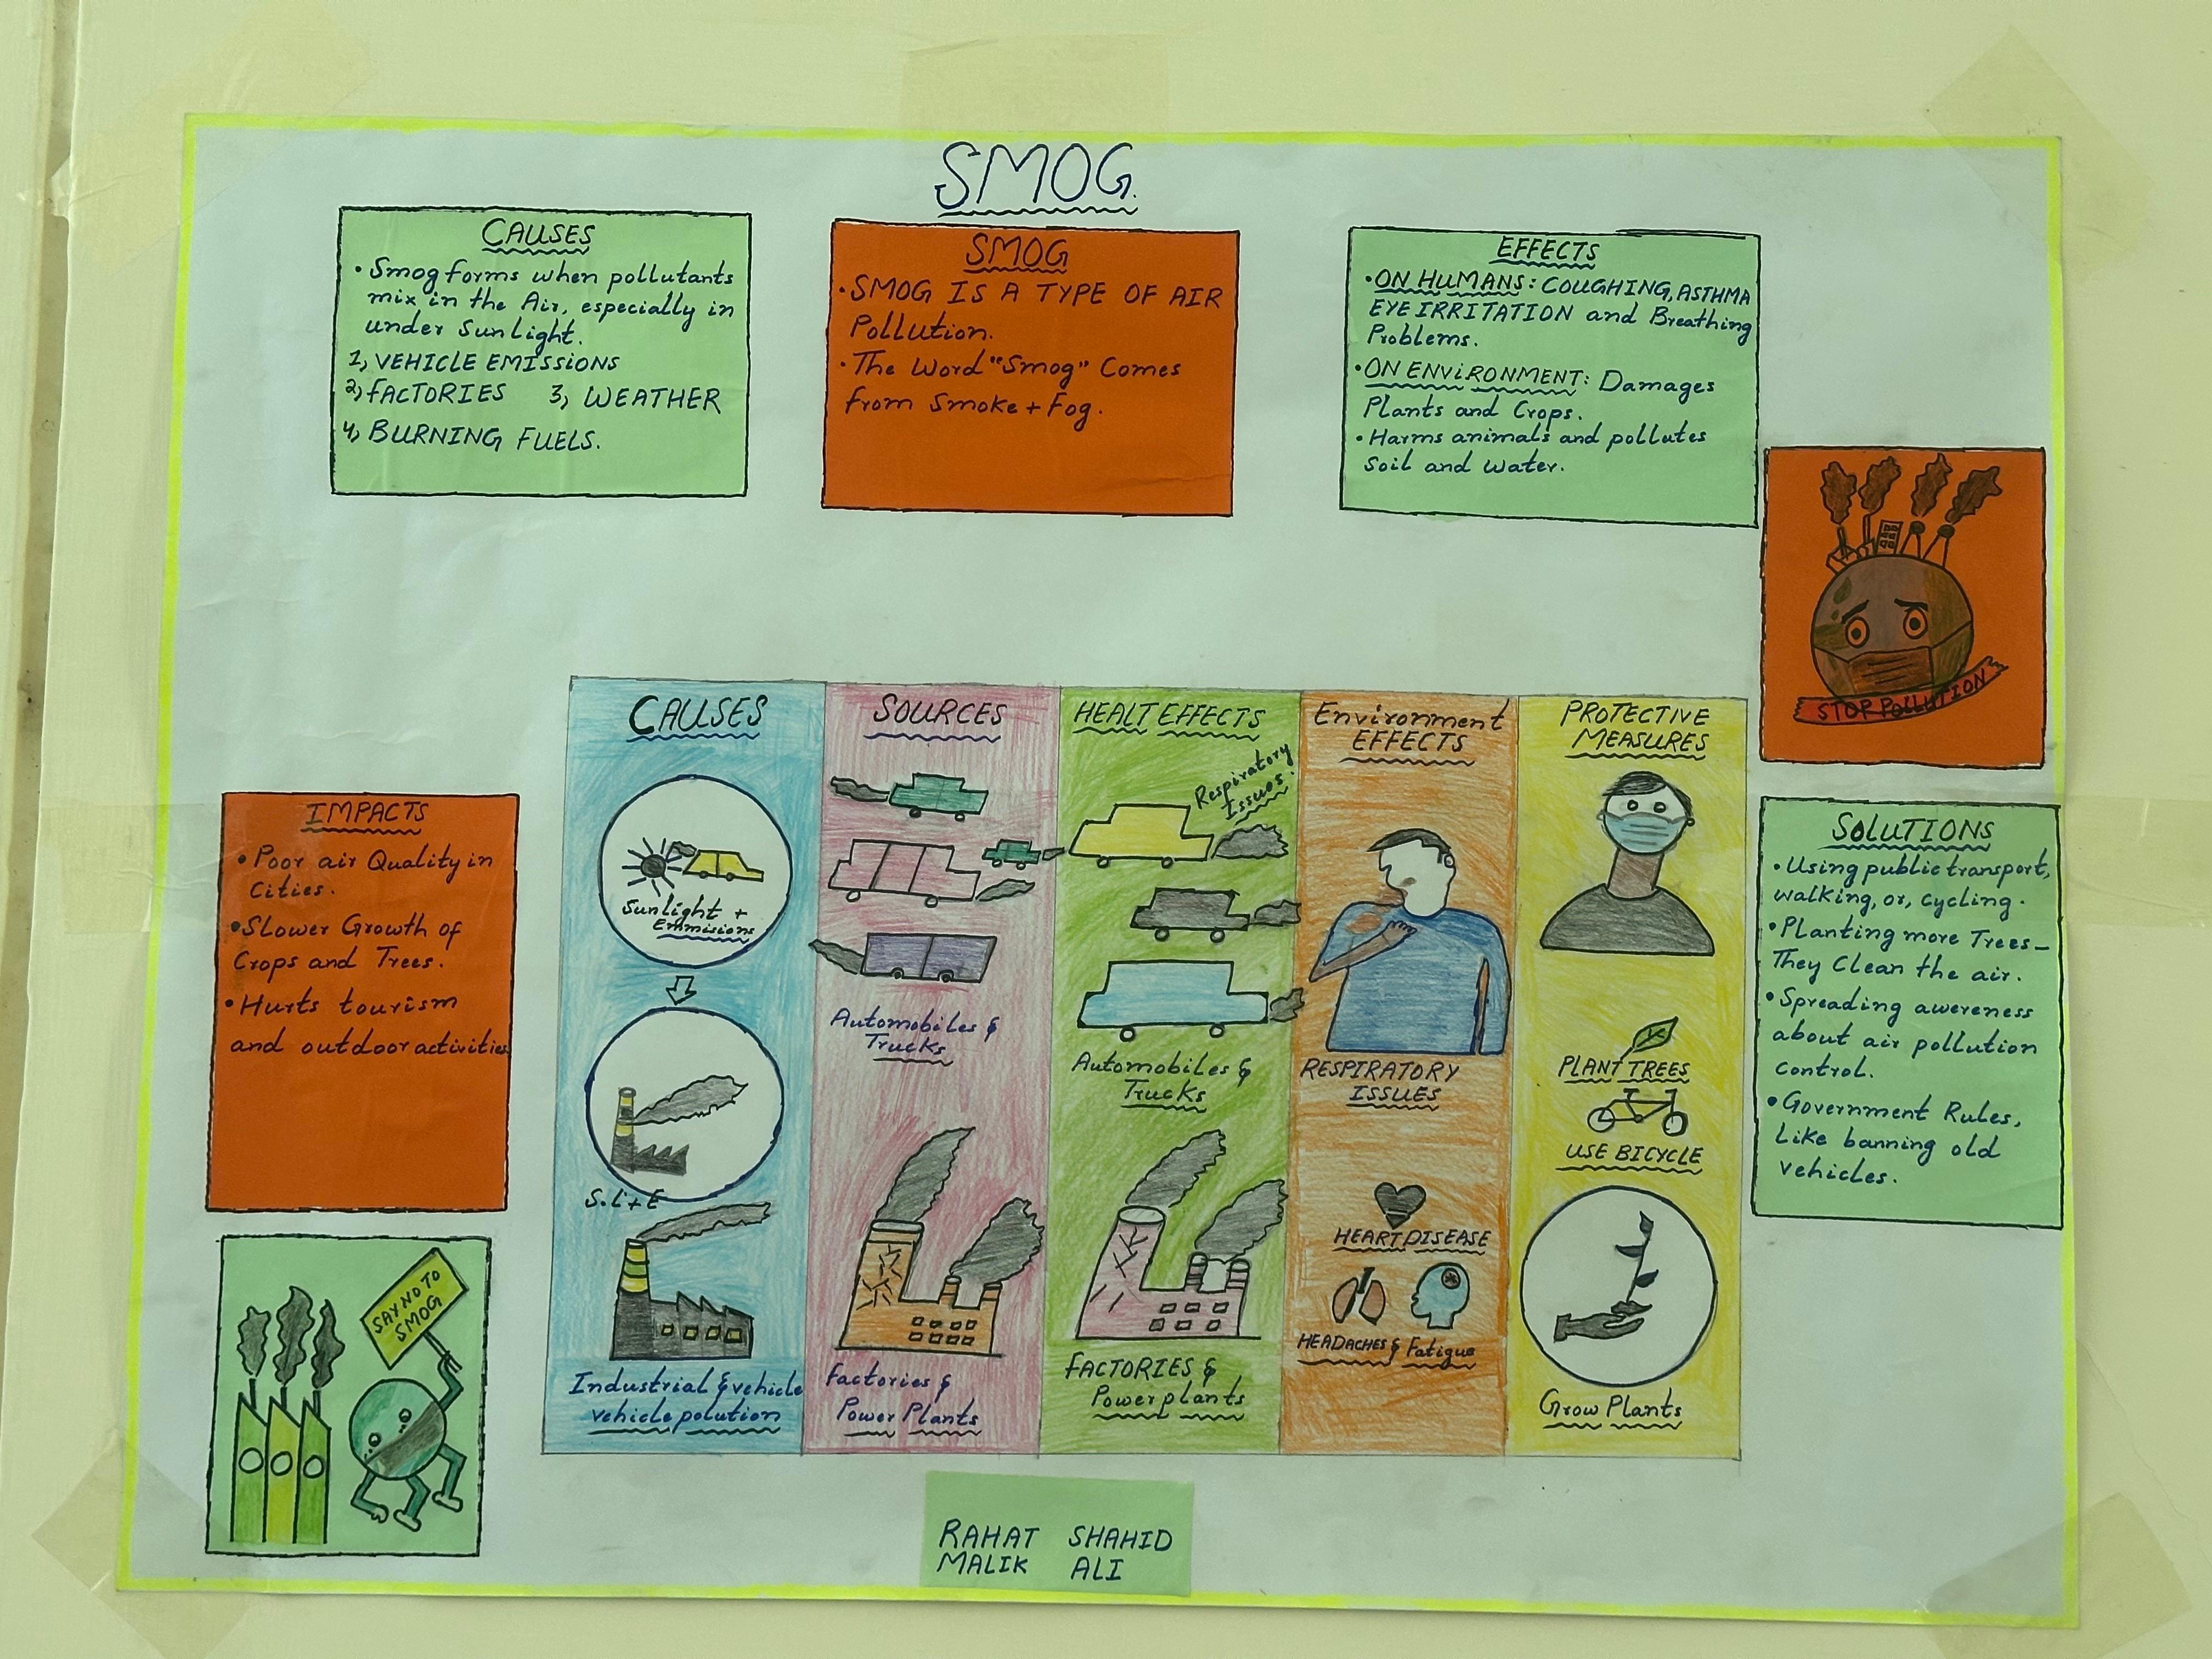 SMOG.
CAUSES
• Smog forms when pollutants
mix in the Air, especially in
under Sunlight.
1, VEHICLE EMISSIONS
2, FACTORIES 3, WEATHER
4, BURNING FUELS.
SMOG
• SMOG IS A TYPE OF AIR
Pollution.
• The Word "Smog" Comes
from Smoke + Fog.
EFFECTS
• ON HUMANS: COUGHING, ASTHMA
EYE IRRITATION and Breathing
Problems.
• ON ENVIRONMENT: Damages
Plants and Crops.
• Harms animals and pollutes
Soil and Water.
STOP POLLUTION
IMPACTS
• Poor air Quality in
Cities.
• Slower Growth of
Crops and Trees.
• Hurts tourism
and outdoor activities
SAY NO TO
SMOG
CAUSES
Sunlight +
Emmisions
S.L+E
Industrial & vehicle
vehicle polution
SOURCES
Automobiles &
Trucks
Factories &
Power Plants
HEALT EFFECTS
Respiratory
Issues.
Automobiles &
Trucks
FACTORIES &
Power plants
Environment
EFFECTS
RESPIRATORY
ISSUES
HEART DISEASE
HEADACHES & Fatigue
PROTECTIVE
MEASURES
PLANT TREES
USE BICYCLE
Grow Plants
SOLUTIONS
• Using public transport,
walking, or, cycling.
• Planting more Trees—
They Clean the air.
• Spreading awereness
about air pollution
control.
• Government Rules,
Like banning old
vehicles.
RAHAT SHAHID
MALIK ALI